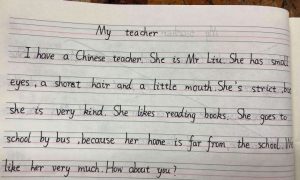 My teacher
I have a Chinese teacher. She is Mr Liu. She has small
eyes, a shorst hair and a little mouth. She's strict, but
she is very kind. She likes reading books. She goes to
school by bus, because her home is far from the school. We
like her very much. How about you?